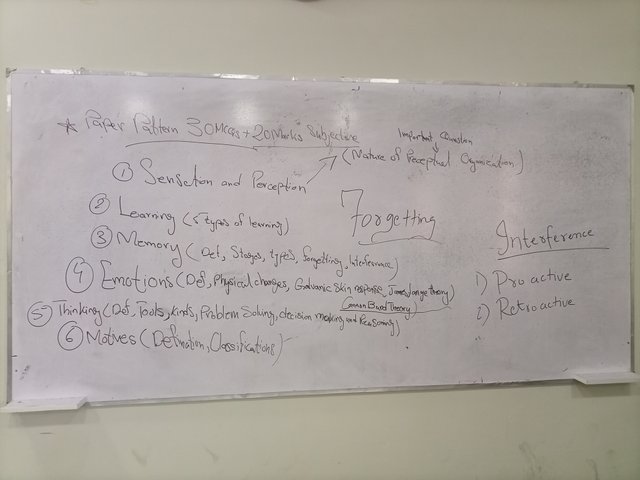 * Paper Pattern 30 Mcqs + 20 Marks Subjective
Important Question
(Nature of Perceptual Organization)
① Sensation and Perception
② Learning (5 types of learning)
③ Memory (Def, Stages, types, forgetting, Interference)
④ Emotions (Def, Physical changes, Galvanic Skin response, James Lange theory)
Cannon Bard Theory)
⑤ Thinking (Def, Tools, kinds, Problem Solving, decision making and Reasoning)
⑥ Motives (Definition, Classification)
Forgetting
Interference
i) Pro active
ii) Retroactive